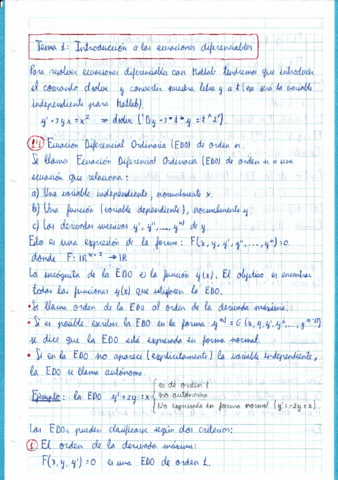 Tema 1: Introducción a las ecuaciones diferenciales
Para resolver ecuaciones diferenciales con Matlab tendremos que introducir
el comando dsolve y convertir nuestra letra y a t (ya será la variable
independiente para Matlab).
y'+3y x = x² ⇒ dsolve ('Dy+3*t*y = t^2').
1.1 Ecuación Diferencial Ordinaria (EDO) de orden n.
Se llama Ecuación Diferencial Ordinaria (EDO) de orden n a una
ecuación que relaciona:
a) Una variable independiente, normalmente x.
b) Una función (variable dependiente), normalmente y.
c) Las derivadas sucesivas y', y'', ..., y⁽ⁿ⁾ de y.
Esto es una expresión de la forma: F(x, y, y', y'', ..., y⁽ⁿ⁾) = 0.
donde F: ℝⁿ⁺² → ℝ
La incógnita de la EDO es la función y(x). El objetivo es encontrar
todas las funciones y(x) que satisfacen la EDO.
• Se llama orden de la EDO al orden de la derivada máxima.
• Si es posible escribir la EDO en la forma y⁽ⁿ⁾ = G (x, y, y', y'', ..., y⁽ⁿ⁻¹⁾)
se dice que la EDO está expresada en forma normal.
• Si en la EDO no aparece (explícitamente) la variable independiente,
la EDO se llama autónoma.
Ejemplo: la EDO y'+2y = x
es de orden 1
no autónoma
No expresada en forma normal (y' = -2y + x)
Las EDOs pueden clasificarse según dos criterios:
1 El orden de la derivada máxima:
F(x, y, y') = 0 es una EDO de orden 1.